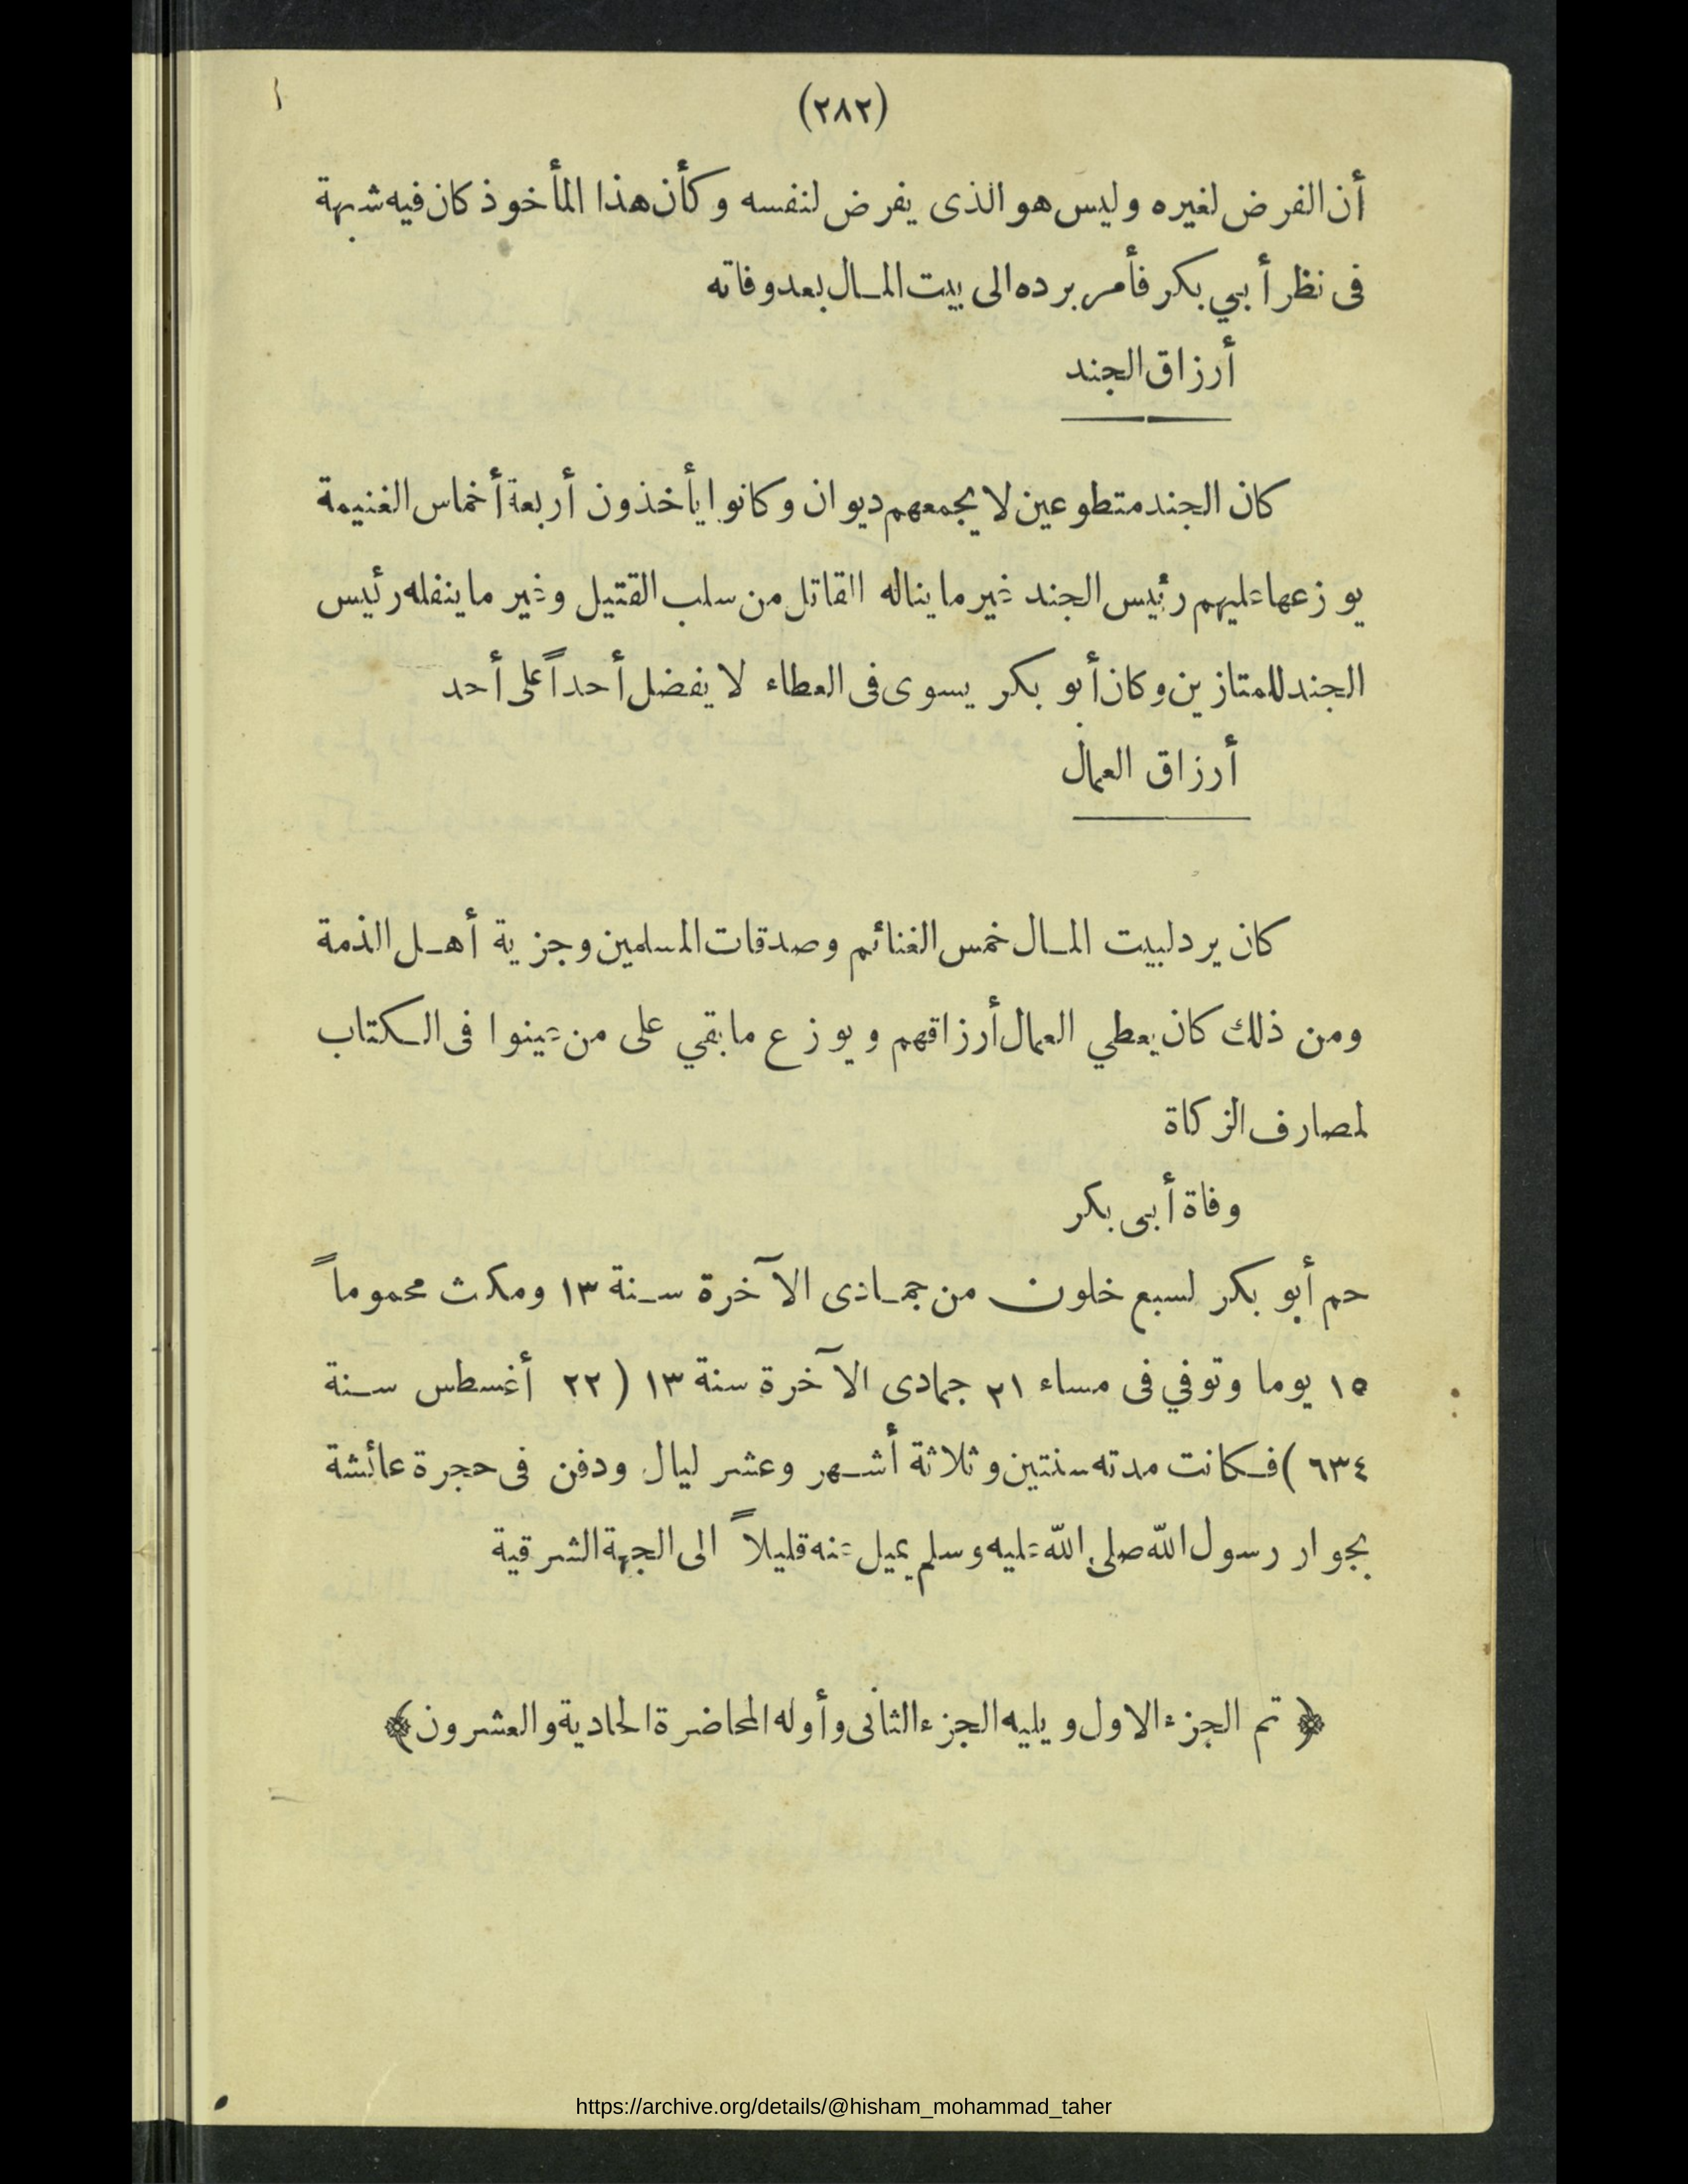 (٢٨٢)
أن الفرض لغيره وليس هو الذى يفرض لنفسه وكأن هذا المأخوذ كان فيه شبهة
فى نظر أبي بكر فأمر برده الى بيت المال بعد وفاته
أرزاق الجند
كان الجند متطوعين لا يجمعهم ديوان وكانوا يأخذون أربعة أخماس الغنيمة
يوزعها عليهم رئيس الجند غير ما يناله القاتل من سلب القتيل وغير ما ينفله رئيس
الجند للممتازين وكان أبو بكر يسوى فى العطاء لا يفضل أحداً على أحد
أرزاق العمال
كان يرد لبيت المال خمس الغنائم وصدقات المسلمين وجزية أهل الذمة
ومن ذلك كان يعطي العمال أرزاقهم ويوزع ما بقي على من عينوا فى الكتاب
لمصارف الزكاة
وفاة أبى بكر
حم أبو بكر لسبع خلون من جمادى الآخرة سنة ١٣ ومكث محموماً
١٥ يوما وتوفي فى مساء ٢١ جمادى الآخرة سنة ١٣ (٢٢ أغسطس سنة
٦٣٤) فكانت مدته سنتين وثلاثة أشهر وعشر ليال ودفن فى حجرة عائشة
بجوار رسول الله صلى الله عليه وسلم يميل عنه قليلاً الى الجهة الشرقية
﴿ تم الجزء الاول ويليه الجزء الثانى وأوله المحاضرة الحادية والعشرون ﴾
https://archive.org/details/@hisham_mohammad_taher